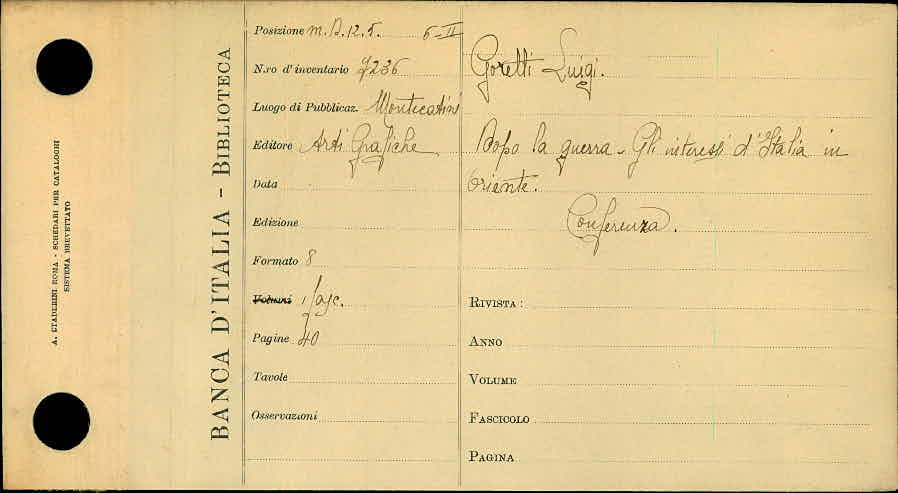 A. STADERINI ROMA - SCHEDARI PER CATALOGHI
SISTEMA BREVETTATO
BANCA D'ITALIA - BIBLIOTECA
Posizione m. B. 12. 5. 6-II
N.ro d'inventario 7236
Luogo di Pubblicaz. Montecatini
Editore Arti Grafiche
Data
Edizione
Formato 8
Volumi 1 fasc.
Pagine 40
Tavole
Osservazioni
Goretti Luigi.
Dopo la guerra - Gli interessi d'Italia in
Oriente.
Conferenza.
RIVISTA:
ANNO
VOLUME
FASCICOLO
PAGINA